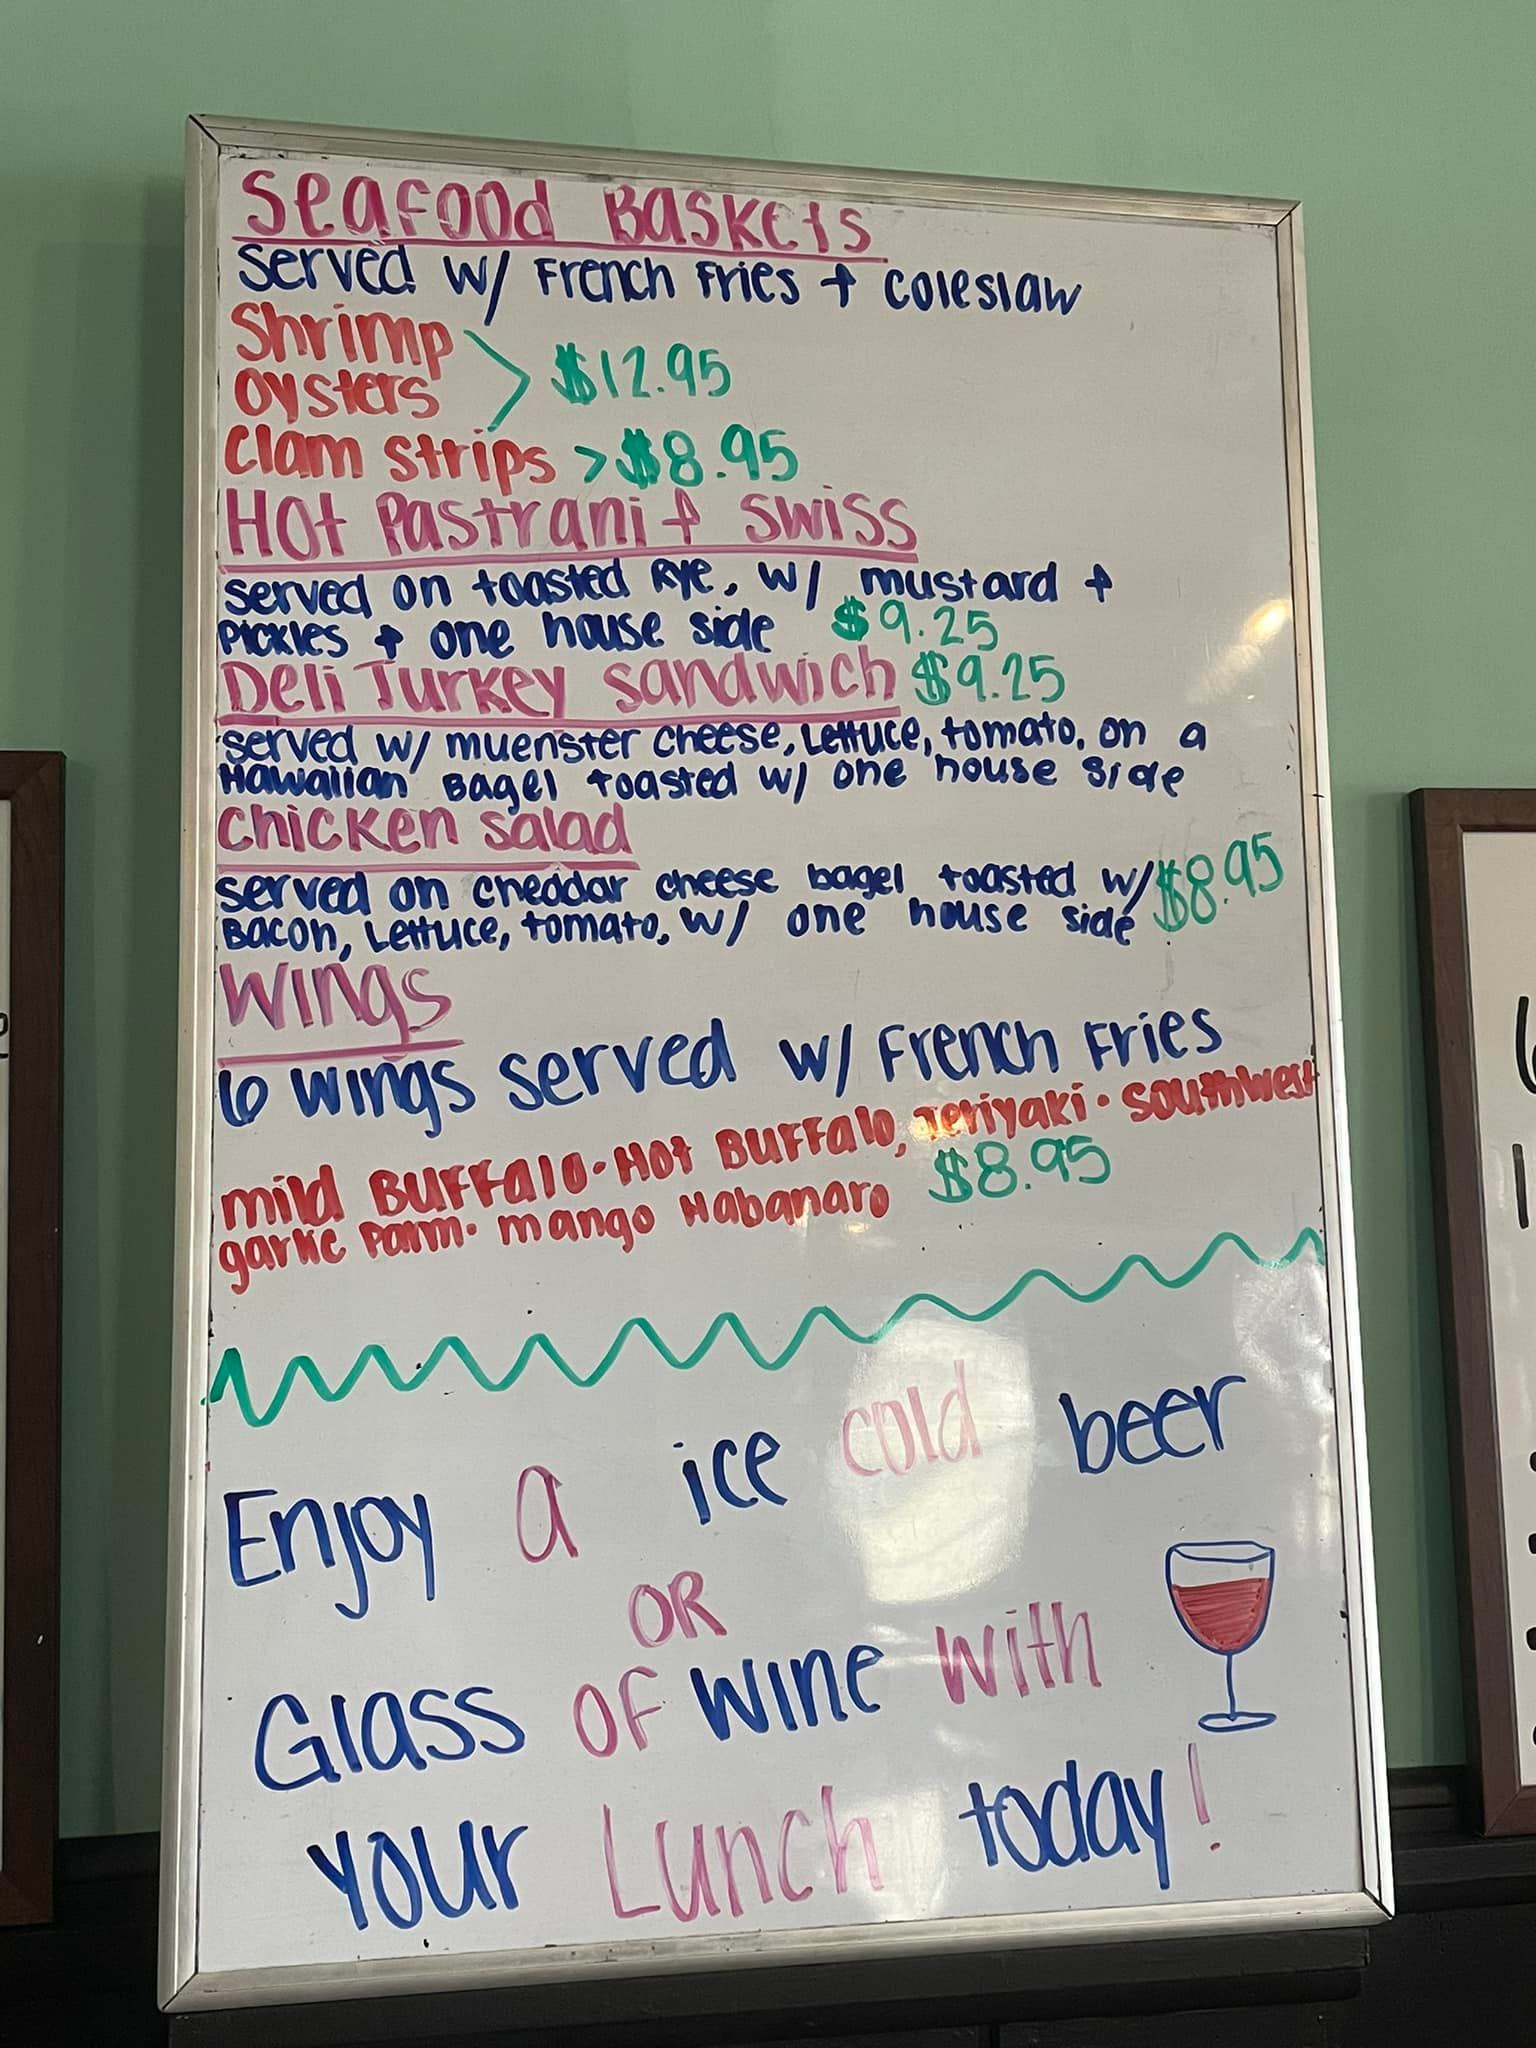 Seafood Baskets
Served w/ French Fries + coleslaw
Shrimp
oysters > $12.95
Clam strips > $8.95
Hot Pastrani + Swiss
served on toasted Rye, w/ mustard +
Pickles + one house side $9.25
Deli Turkey sandwich $9.25
served w/ muenster cheese, Lettuce, tomato, on a
Hawaiian Bagel toasted w/ one house side
Chicken Salad
served on cheddar cheese bagel toasted w/ $8.95
Bacon, Lettuce, tomato, w/ one house side
Wings
6 Wings served w/ French Fries
mild Buffalo · Hot Buffalo, Teriyaki · Southwest
garlic Parm · mango Habanaro $8.95
Enjoy a ice cold beer
OR
Glass of Wine with
your Lunch today!